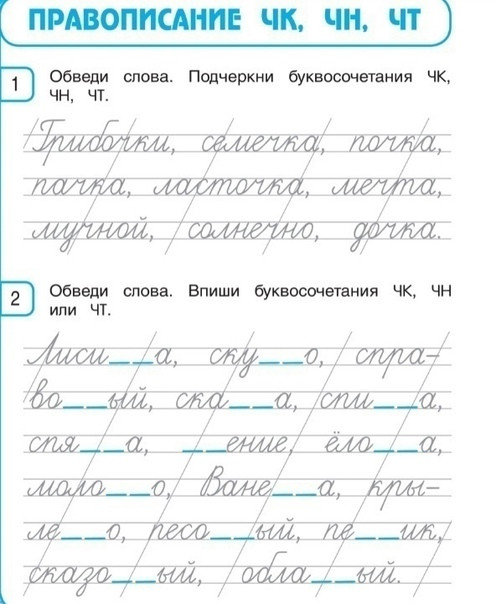 ПРАВОПИСАНИЕ ЧК, ЧН, ЧТ
1
Обведи слова. Подчеркни буквосочетания ЧК,
ЧН, ЧТ.
Грибочки, семечка, почка,
пачка, ласточка, мечта,
мучной, солнечно, дочка.
2
Обведи слова. Впиши буквосочетания ЧК, ЧН
или ЧТ.
Лиси__а, ску__о, спра-
во__ый, ска__а, спи__а,
спя__а, __ение, ёло__а,
моло__о, Ване__а, кры-
ле__о, песо__ый, пе__ик,
сказо__ый, обла__ый.